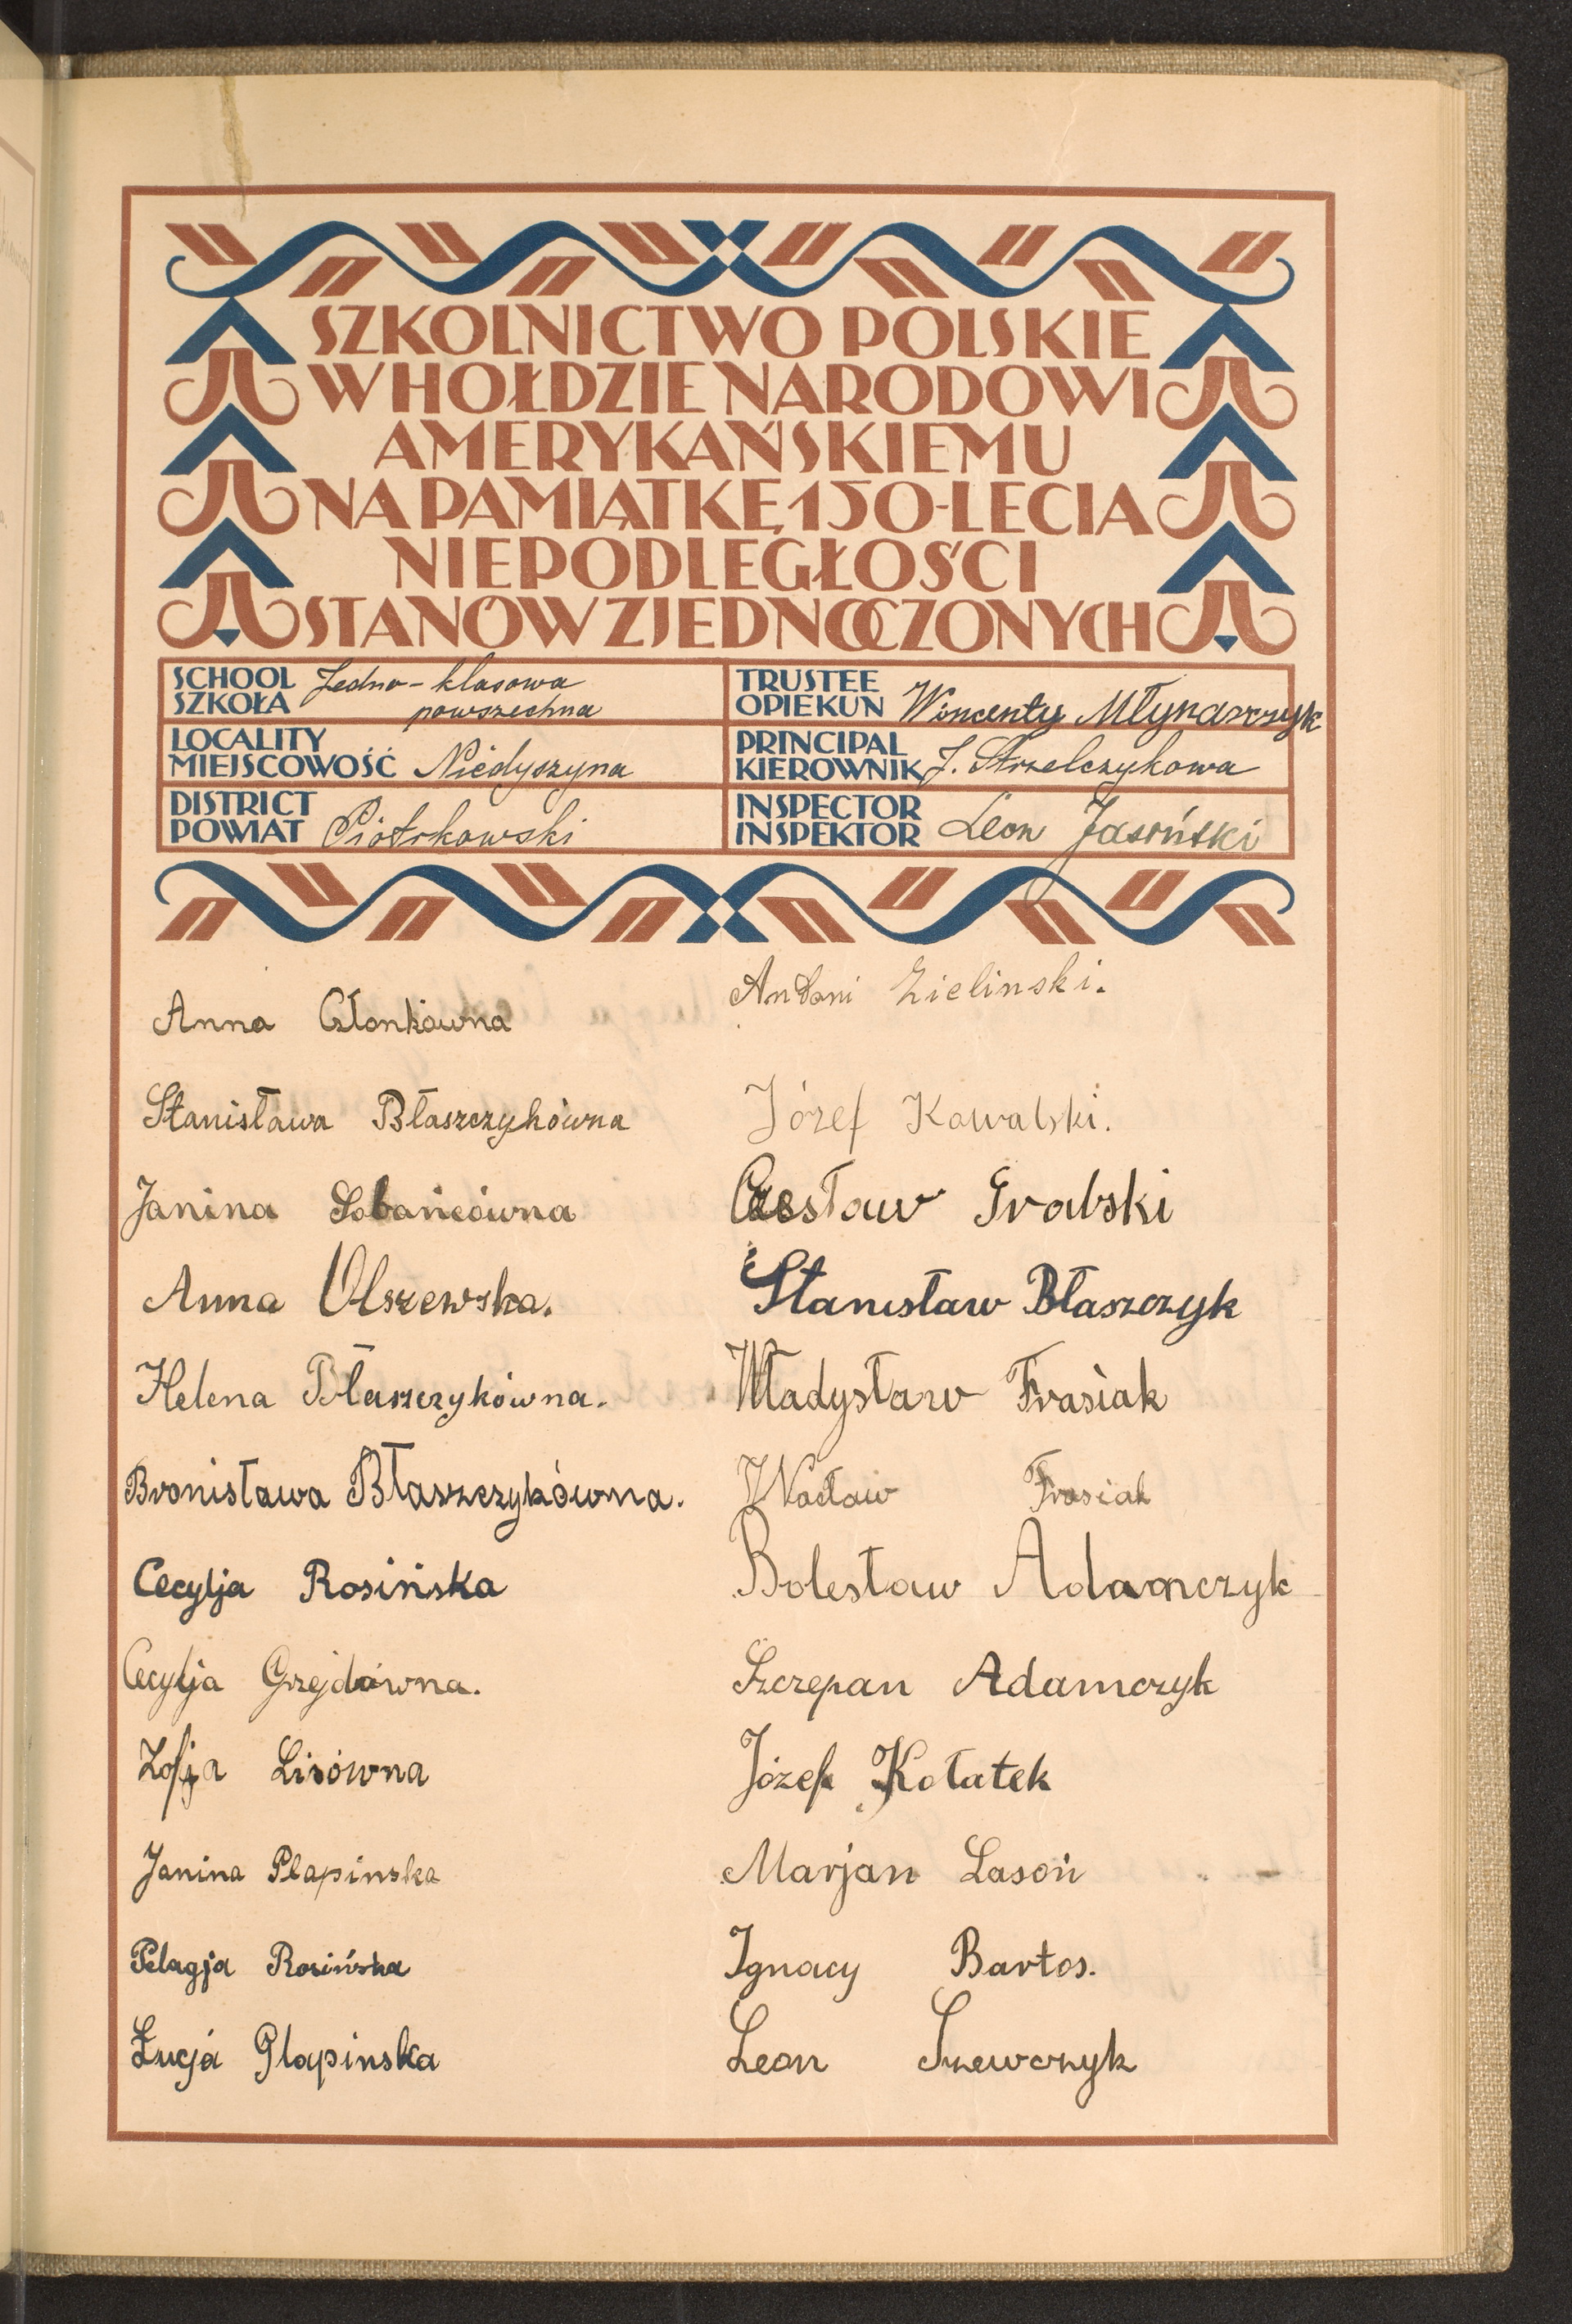 SZKOLNICTWO POLSKIE
W HOŁDZIE NARODOWI
AMERYKAŃSKIEMU
NA PAMIĄTKĘ 150-LECIA
NIEPODLEGŁOŚCI
STANÓW ZJEDNOCZONYCH
SCHOOL
SZKOŁA
Jedno-klasowa
powszechna
TRUSTEE
OPIEKUN
Wincenty Młynarczyk
LOCALITY
MIEJSCOWOŚĆ
Niedyszyna
PRINCIPAL
KIEROWNIK
J. Strzelczykowa
DISTRICT
POWIAT
Piotrkowski
INSPECTOR
INSPEKTOR
Leon Jasiński
Anna Członkówna
Stanisława Błaszczykówna
Janina Sobańcówna
Anna Olszewska.
Helena Błaszczykówna.
Bronisława Błaszczykówna.
Cecylja Rosińska
Cecylja Grzejdówna.
Zofja Lisówna
Janina Plapinska
Pelagja Rosińska
Łucja Plapinska
Antoni Zielinski.
Józef Kowalski.
Czesław Grabski
Stanisław Błaszczyk
Władysław Frasiak
Wacław Frasiak
Bolesław Adamczyk
Szczepan Adamczyk
Józef Kołatek
Marjan Lasoń
Ignacy Bartos.
Leon Szewczyk